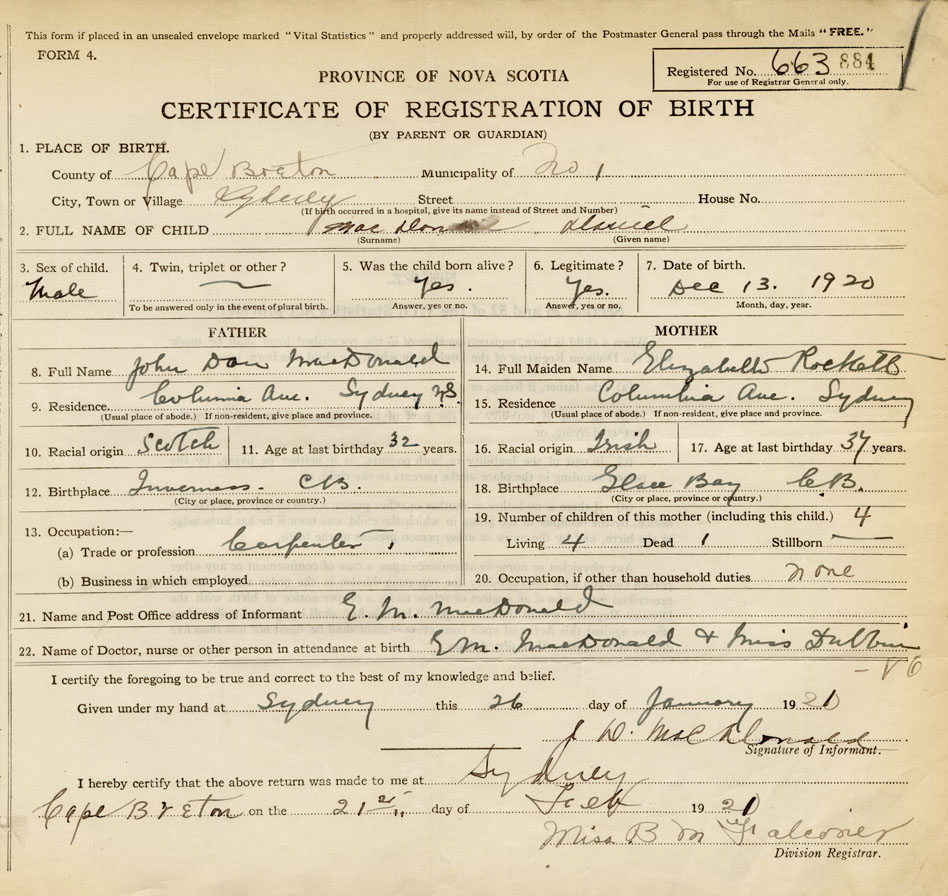 This form if placed in an unsealed envelope marked "Vital Statistics" and properly addressed will, by order of the Postmaster General pass through the Mails "FREE."
FORM 4.
Registered No. 663 884
For use of Registrar General only.
PROVINCE OF NOVA SCOTIA
CERTIFICATE OF REGISTRATION OF BIRTH
(BY PARENT OR GUARDIAN)
1. PLACE OF BIRTH.
County of Cape Breton Municipality of No 1
City, Town or Village Sydney Street House No.
(If birth occurred in a hospital, give its name instead of Street and Number)
2. FULL NAME OF CHILD Daniel
(Surname) (Given name)
3. Sex of child. 4. Twin, triplet or other? 5. Was the child born alive? 6. Legitimate? 7. Date of birth.
Male — Yes. Yes. Dec 13. 1920
To be answered only in the event of plural birth. Answer, yes or no. Answer, yes or no. Month, day, year.
FATHER MOTHER
8. Full Name John Dan MacDonald
14. Full Maiden Name Elizabeth Rockett
9. Residence. Columia Ave. Sydney N.S.
(Usual place of abode.) If non-resident, give place and province.
15. Residence Columbia Ave. Sydney
(Usual place of abode.) If non-resident, give place and province.
10. Racial origin Scotch 11. Age at last birthday 32 years.
16. Racial origin Irish 17. Age at last birthday 37 years.
12. Birthplace Inverness. C.B.
(City or place, province or country.)
18. Birthplace Glace Bay C.B.
(City or place, province or country.)
13. Occupation:—
(a) Trade or profession Carpenter.
(b) Business in which employed
19. Number of children of this mother (including this child.) 4
Living 4 Dead 1 Stillborn —
20. Occupation, if other than household duties none
21. Name and Post Office address of Informant E. M. MacDonald
22. Name of Doctor, nurse or other person in attendance at birth E M. MacDonald & Miss
I certify the foregoing to be true and correct to the best of my knowledge and belief.
Given under my hand at Sydney this 26 day of January 1921
J. D. MacDonald
Signature of Informant.
I hereby certify that the above return was made to me at Sydney
Cape Breton on the 21st day of Feb 1921
Miss B M Falconer
Division Registrar.